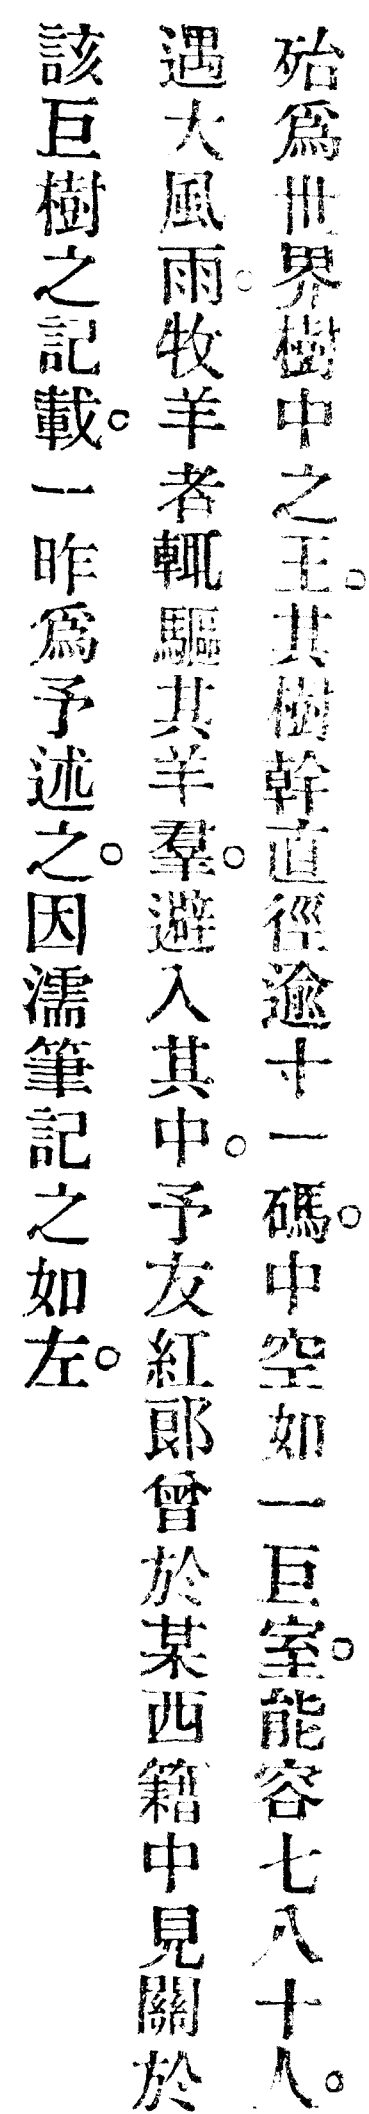 殆爲世界樹中之王。其樹幹直徑逾寸一碼。中空如一巨室。能容七八十人。
遇大風雨。牧羊者輒驅其羊羣。避入其中。予友紅郞曾於某西籍中見關於
該巨樹之記載。一昨爲予述之。因濡筆記之如左。